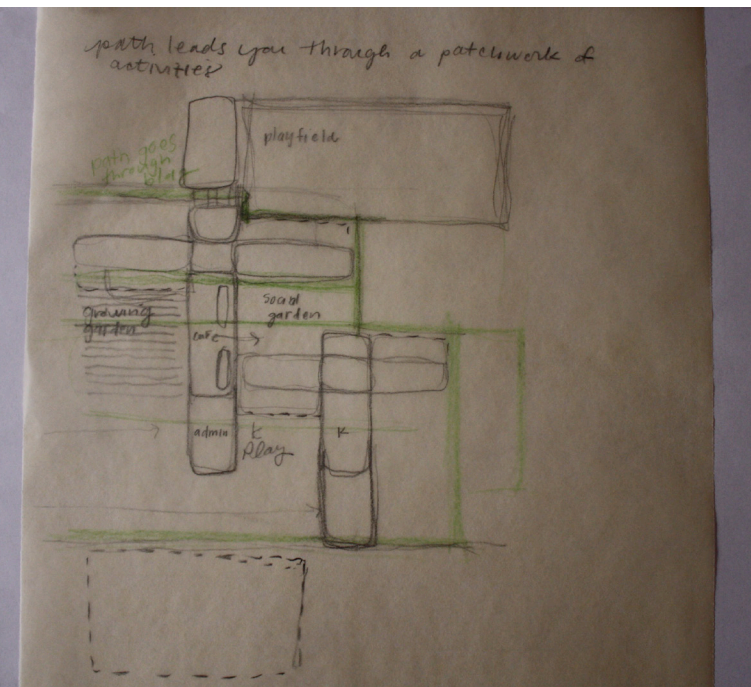 path leads you through a patchwork of
activities
playfield
path goes
through
bldg
social
garden
growing
garden
cafe
admin
K
Play
K